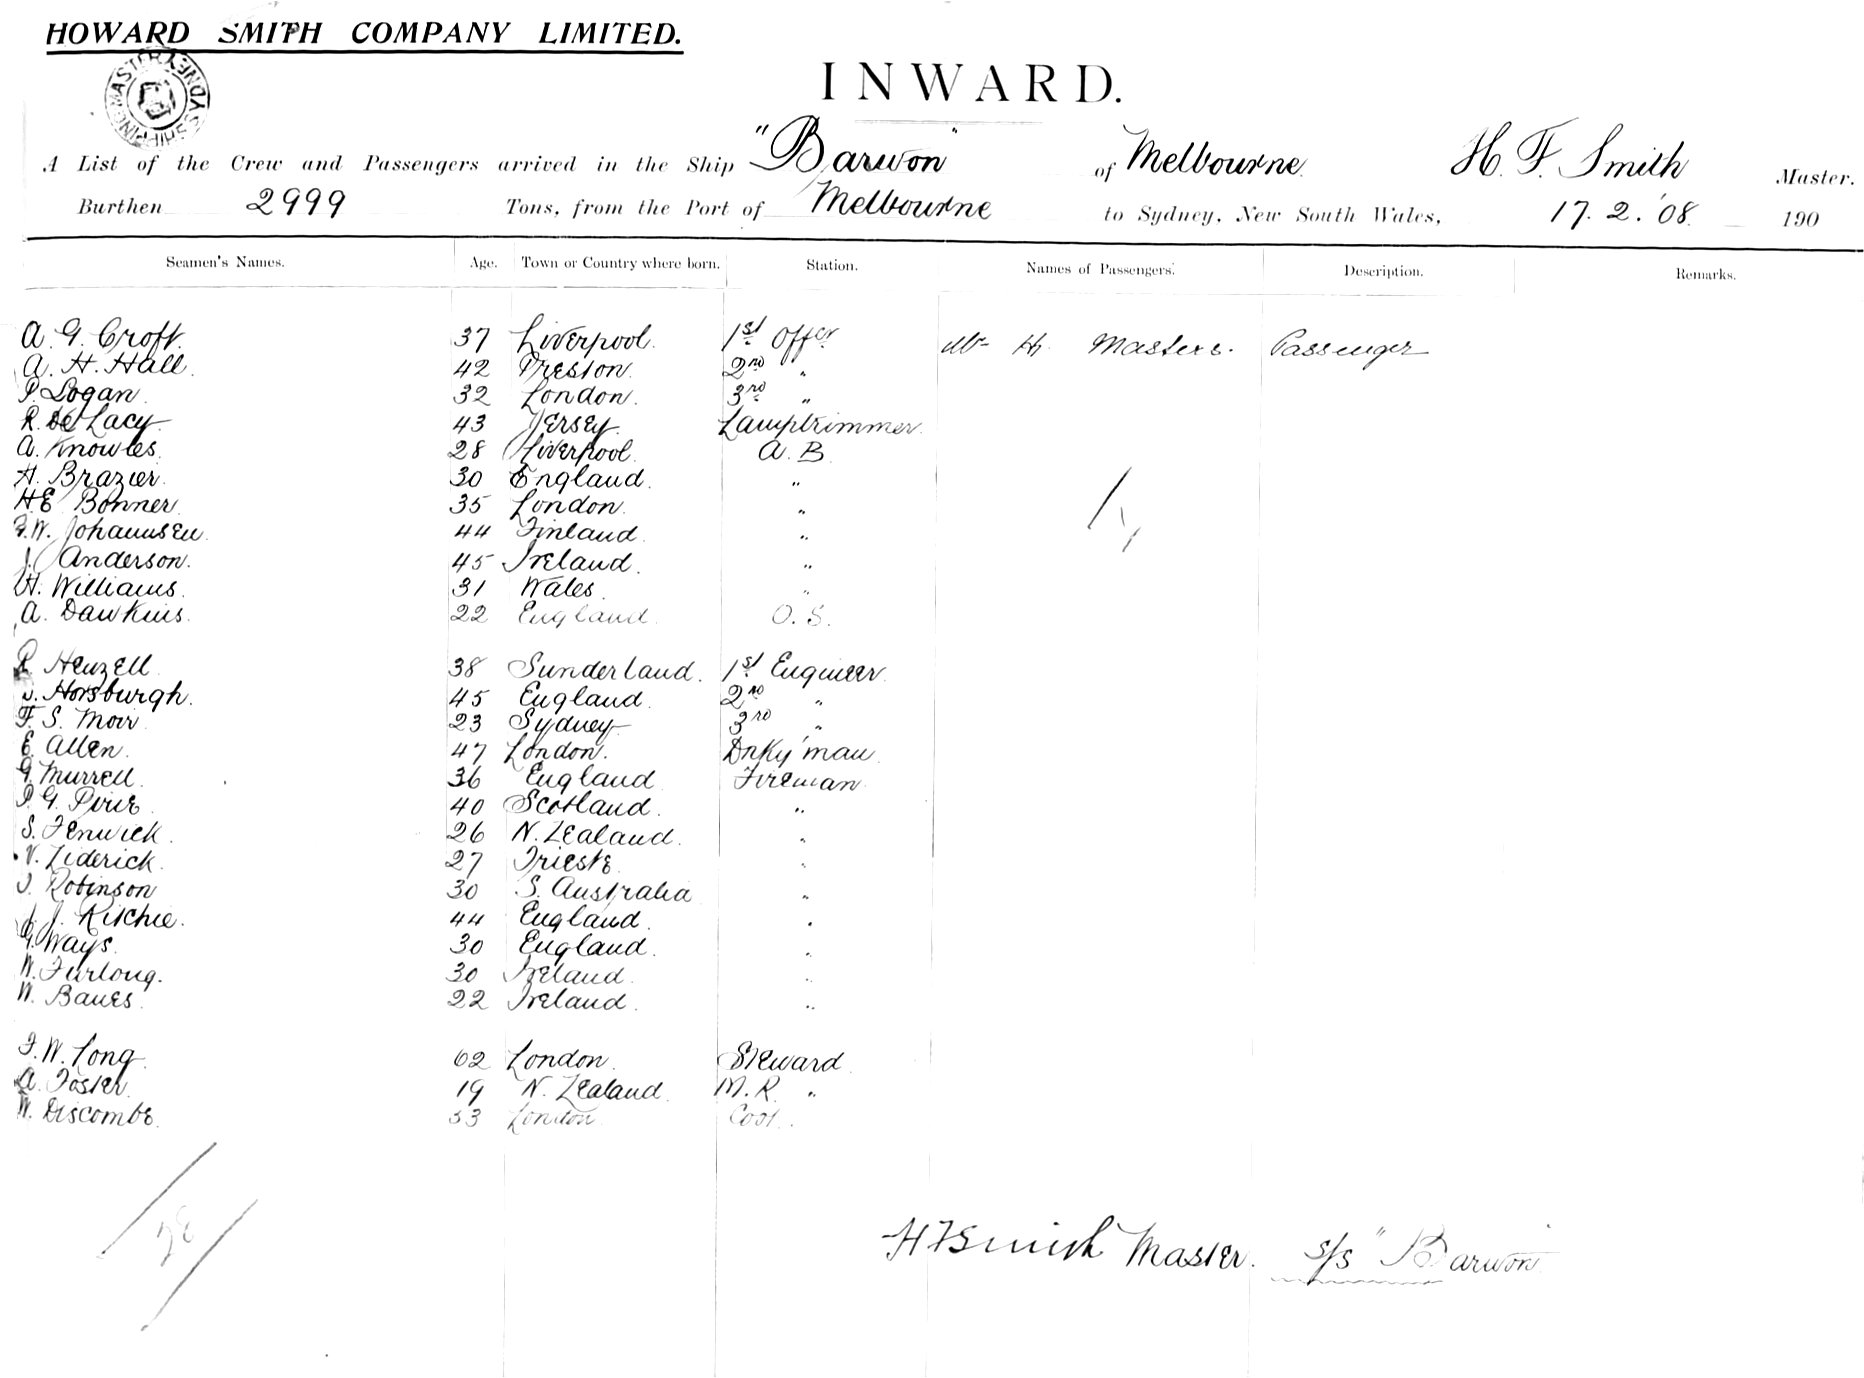 HOWARD SMITH COMPANY LIMITED.
SHIPPING MASTER SYDNEY
INWARD.
A List of the Crew and Passengers arrived in the Ship "Barwon" of Melbourne. H. F. Smith Master.
Burthen 2999 Tons, from the Port of Melbourne to Sydney, New South Wales, 17. 2. '08. 190
Seamen's Names. Age. Town or Country where born. Station. Names of Passengers. Description. Remarks.
A. G. Croft. 37 Liverpool. 1st Offcr Mr H. Masters. Passenger
A. H. Hall. 42 Preston. 2nd "
P. Logan. 32 London. 3rd "
R. De Lacy. 43 Jersey. Lamptrimmer.
A. Knowles. 28 Liverpool. A. B.
H. Brazier. 30 England. "
H.E Bonner. 35 London. "
W. Johannsen. 44 Finland. "
J. Anderson. 45 Ireland. "
H. Williams. 31 Wales. "
A. Dawkins. 22 England. O. S.
R. Henzell 38 Sunderland. 1st Engineer.
Horsburgh. 45 England. 2nd "
F. S. Moir 23 Sydney 3rd "
E. Allen. 47 London. Dnky'man.
G. Murrell. 36 England Fireman
P. G. Pirie. 40 Scotland. "
S. Fenwick. 26 N. Zealand. "
V. Ziderick. 27 Trieste. "
Robinson 30 S. Australia "
J. J. Ritchie. 44 England. "
G. Ways. 30 England. "
W. Furlong. 30 Ireland. "
W. Banes. 22 Ireland. "
F. W. Long. 62 London. Steward.
A. Foster. 19 N. Zealand. M. R. "
W. Discombe. 33 London. Cook.
H F Smith Master. s/s "Barwon"